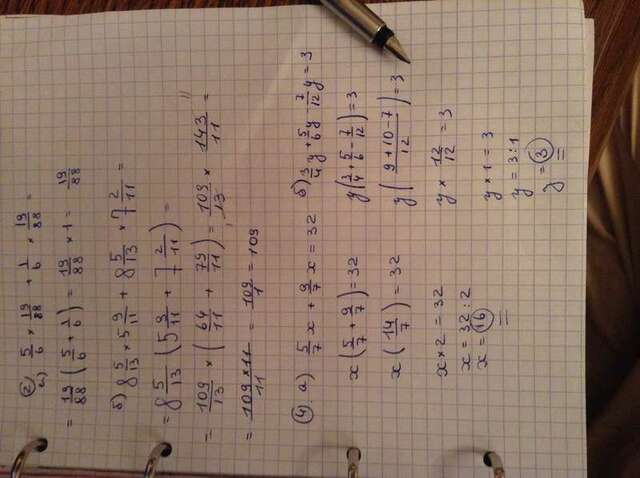 ② а) 5/6 × 19/88 + 1/6 × 19/88 =
= 19/88 (5/6 + 1/6) = 19/88 × 1 = 19/88
б) 8 5/13 × 5 9/11 + 8 5/13 × 7 2/11 =
= 8 5/13 (5 9/11 + 7 2/11) =
= 109/13 × (64/11 + 79/11) = 109/13 × 143/11 =
= 109 × 11/11 = 109/1 = 109
④ а) 5/7 x + 9/7 x = 32
x (5/7 + 9/7) = 32
x (14/7) = 32
x × 2 = 32
x = 32 : 2
x = 16
б) 3/4 y + 5/6 y - 7/12 y = 3
y (3/4 + 5/6 - 7/12) = 3
y (9 + 10 - 7/12) = 3
y × 12/12 = 3
y × 1 = 3
y = 3 : 1
y = 3